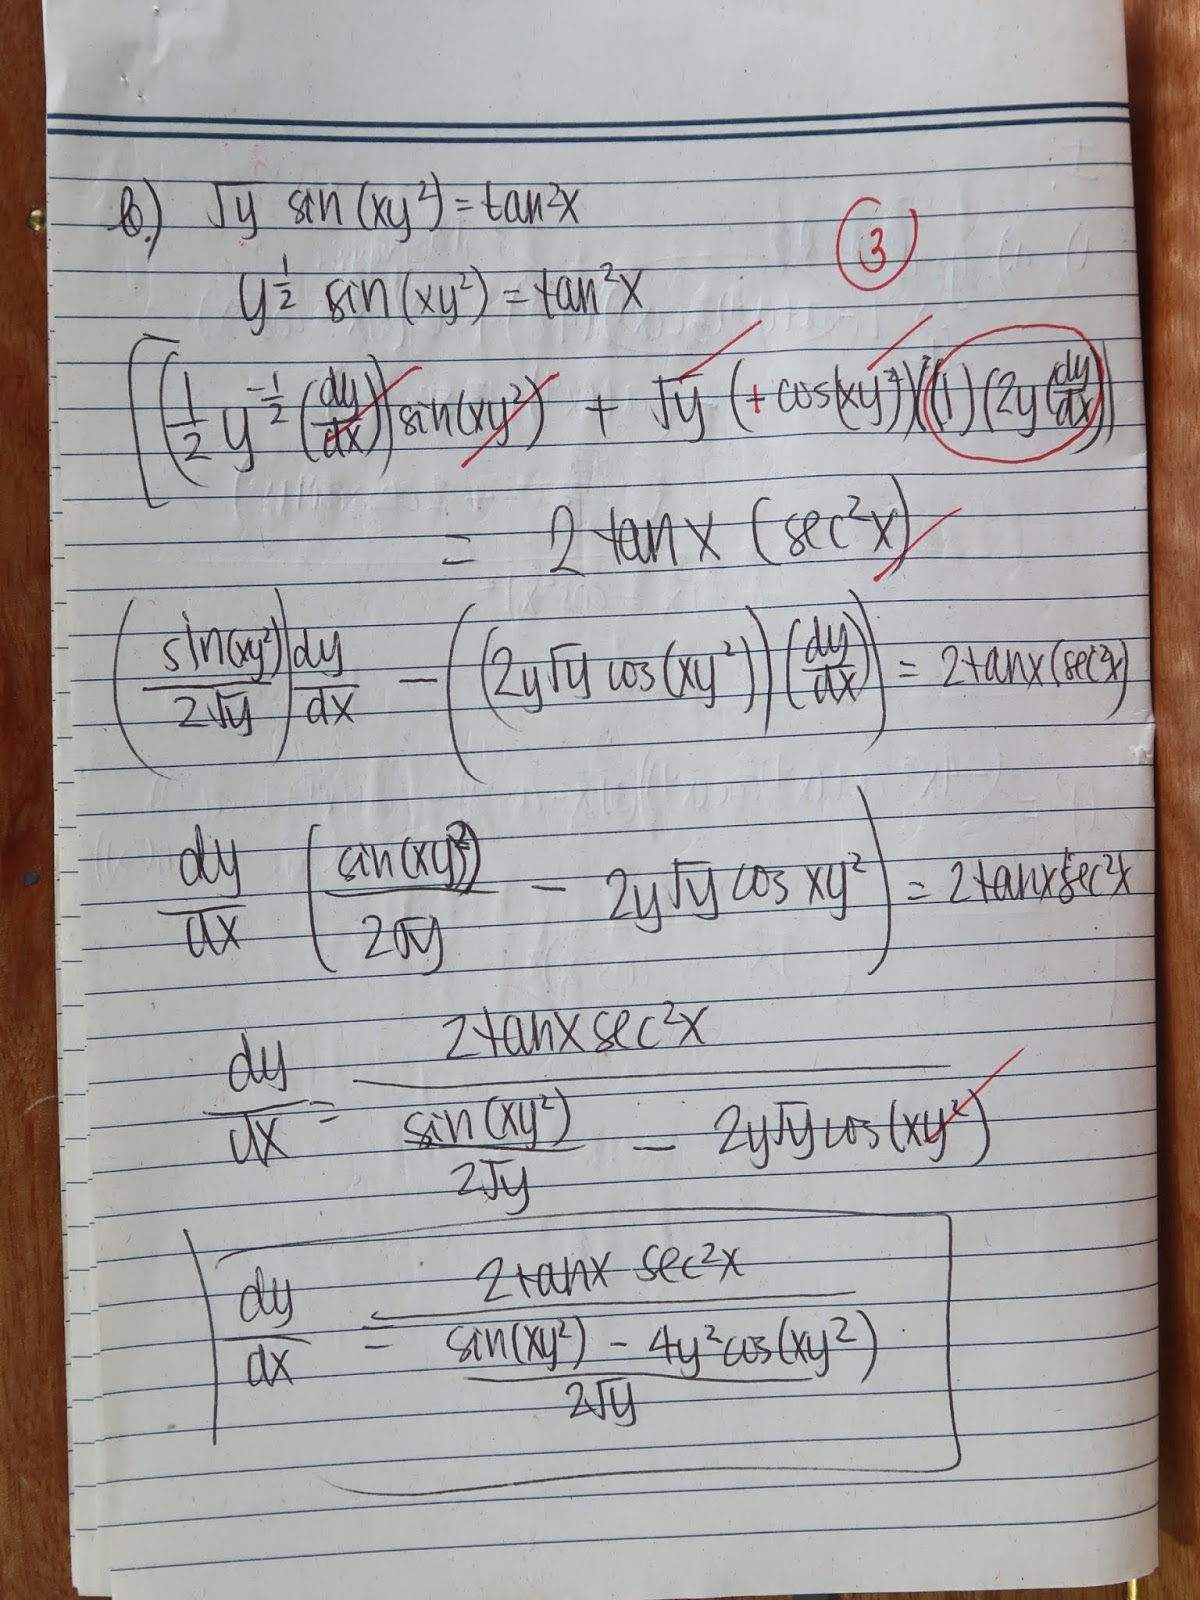 b.) √y sin(xy²) = tan²x
③
y^(1/2) sin(xy²) = tan²x
[(1/2 y^(-1/2) (dy/dx)) sin(xy²) + √y (+cos(xy²))((1)(2y(dy/dx)))
= 2tanx (sec²x)
(sin(xy²)/2√y) dy/dx − ((2y√y cos(xy²))(dy/dx)) = 2tanx(sec²x)
dy/dx (sin(xy²)/2√y − 2y√y cos xy²) = 2tanx sec²x
dy/dx = 2tanx sec²x / (sin(xy²)/2√y − 2y√y cos(xy²))
dy/dx = 2tanx sec²x / ((sin(xy²) − 4y²cos(xy²))/2√y)